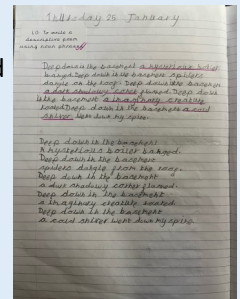 Thursday 25 January
LO: To write a
descriptive poem
using noun phrases
Deep down in the basement a mysterious boiler
banged. Deep down in the basement spiders
dangle on the roof. Deep down in the basement
a dark shadowy corner flamed. Deep down
in the basement a imaginary creature
roared. Deep down in the basement a cold
shiver went down my spine.
Deep down in the basement
A mysterious boiler banged.
Deep down in the basement
spiders dangle from the roof.
Deep down in the basement
a dark shadowy corner flamed.
Deep down in the basement
a imaginary creature roared
Deep down in the basement
a cold shiver went down my spine